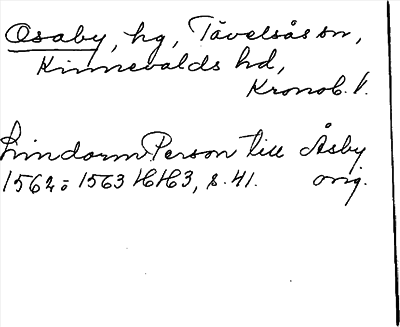 Osaby, hg, Tävelsås sn,
Kinnevalds hd,
Kronob. l.
Lindorm Person till Åsby
1562 o 1563 HH3, s. 41. orig.